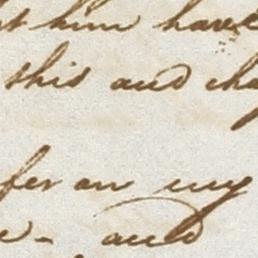 him have
this and
fer on my
and